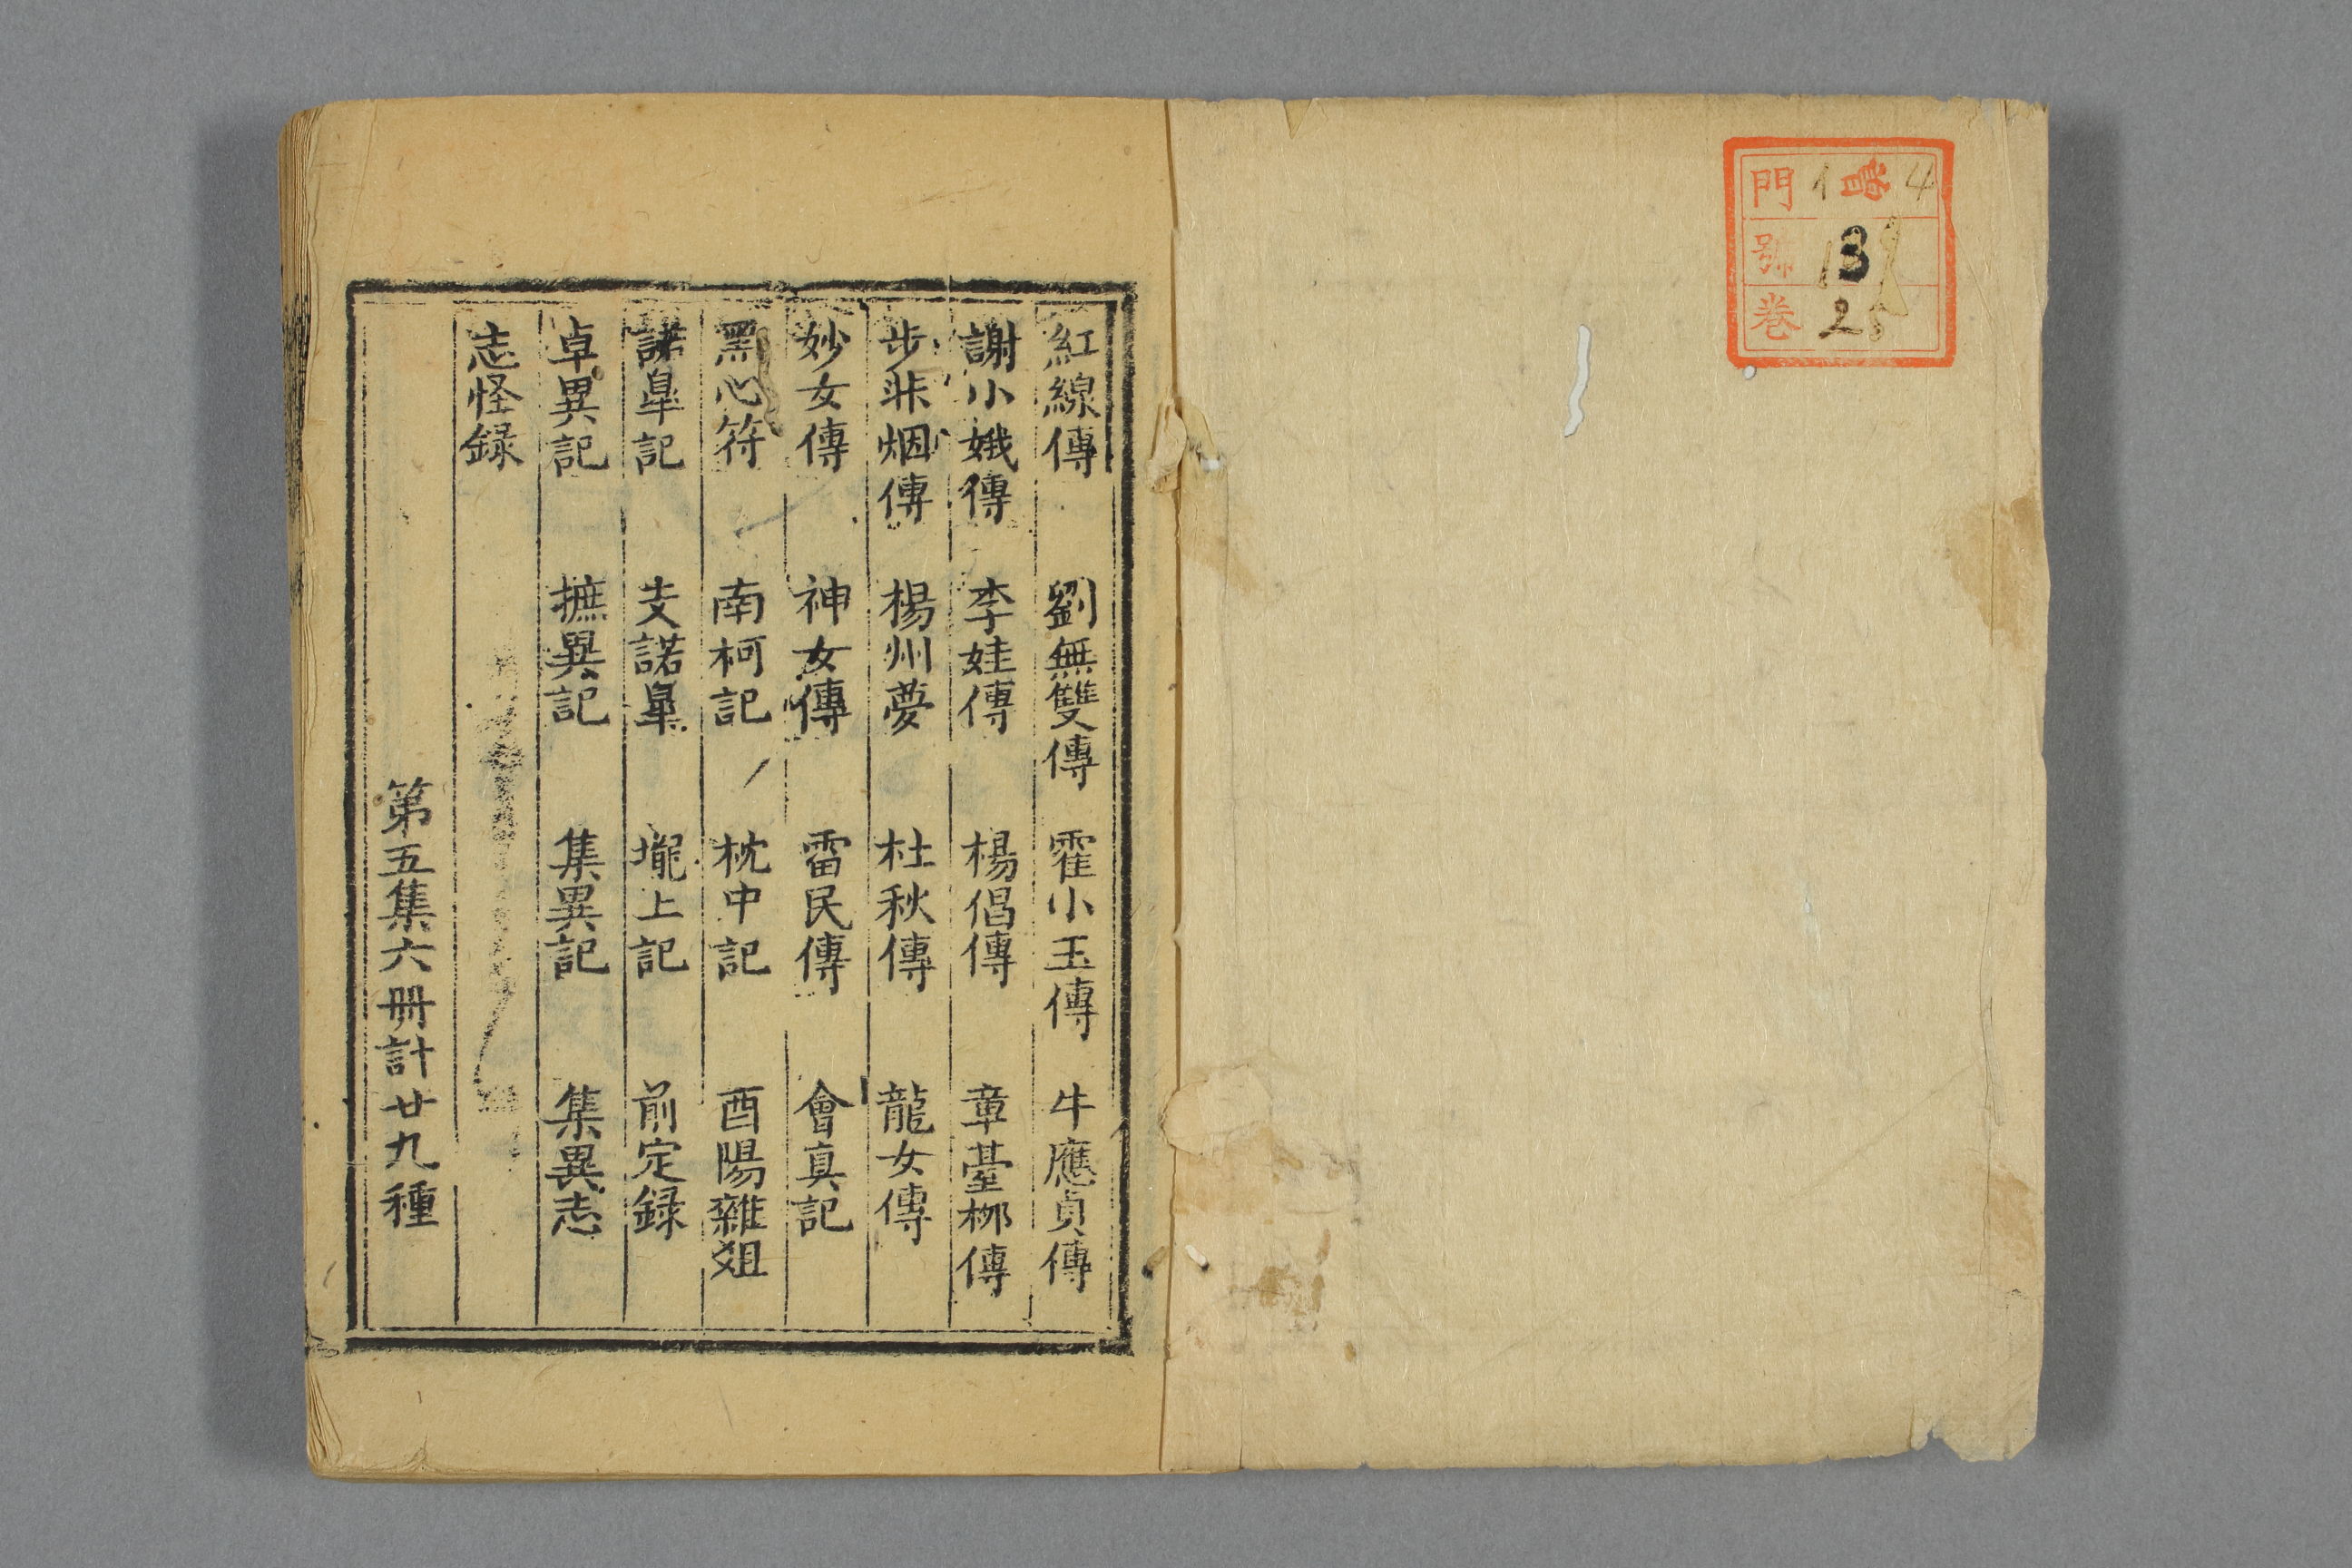 門 4
號 13
卷 25
紅線傳 劉無雙傳 霍小玉傳 牛應貞傳
謝小娥傳 李娃傳 楊倡傳 章臺柳傳
步非烟傳 楊州夢 杜秋傳 龍女傳
妙女傳 神女傳 雷民傳 會真記
黑心符 南柯記 枕中記 酉陽雜俎
諾臯記 支諾臯 壠上記 前定録
卓異記 摭異記 集異記 集異志
志怪録
第五集六册計廿九種